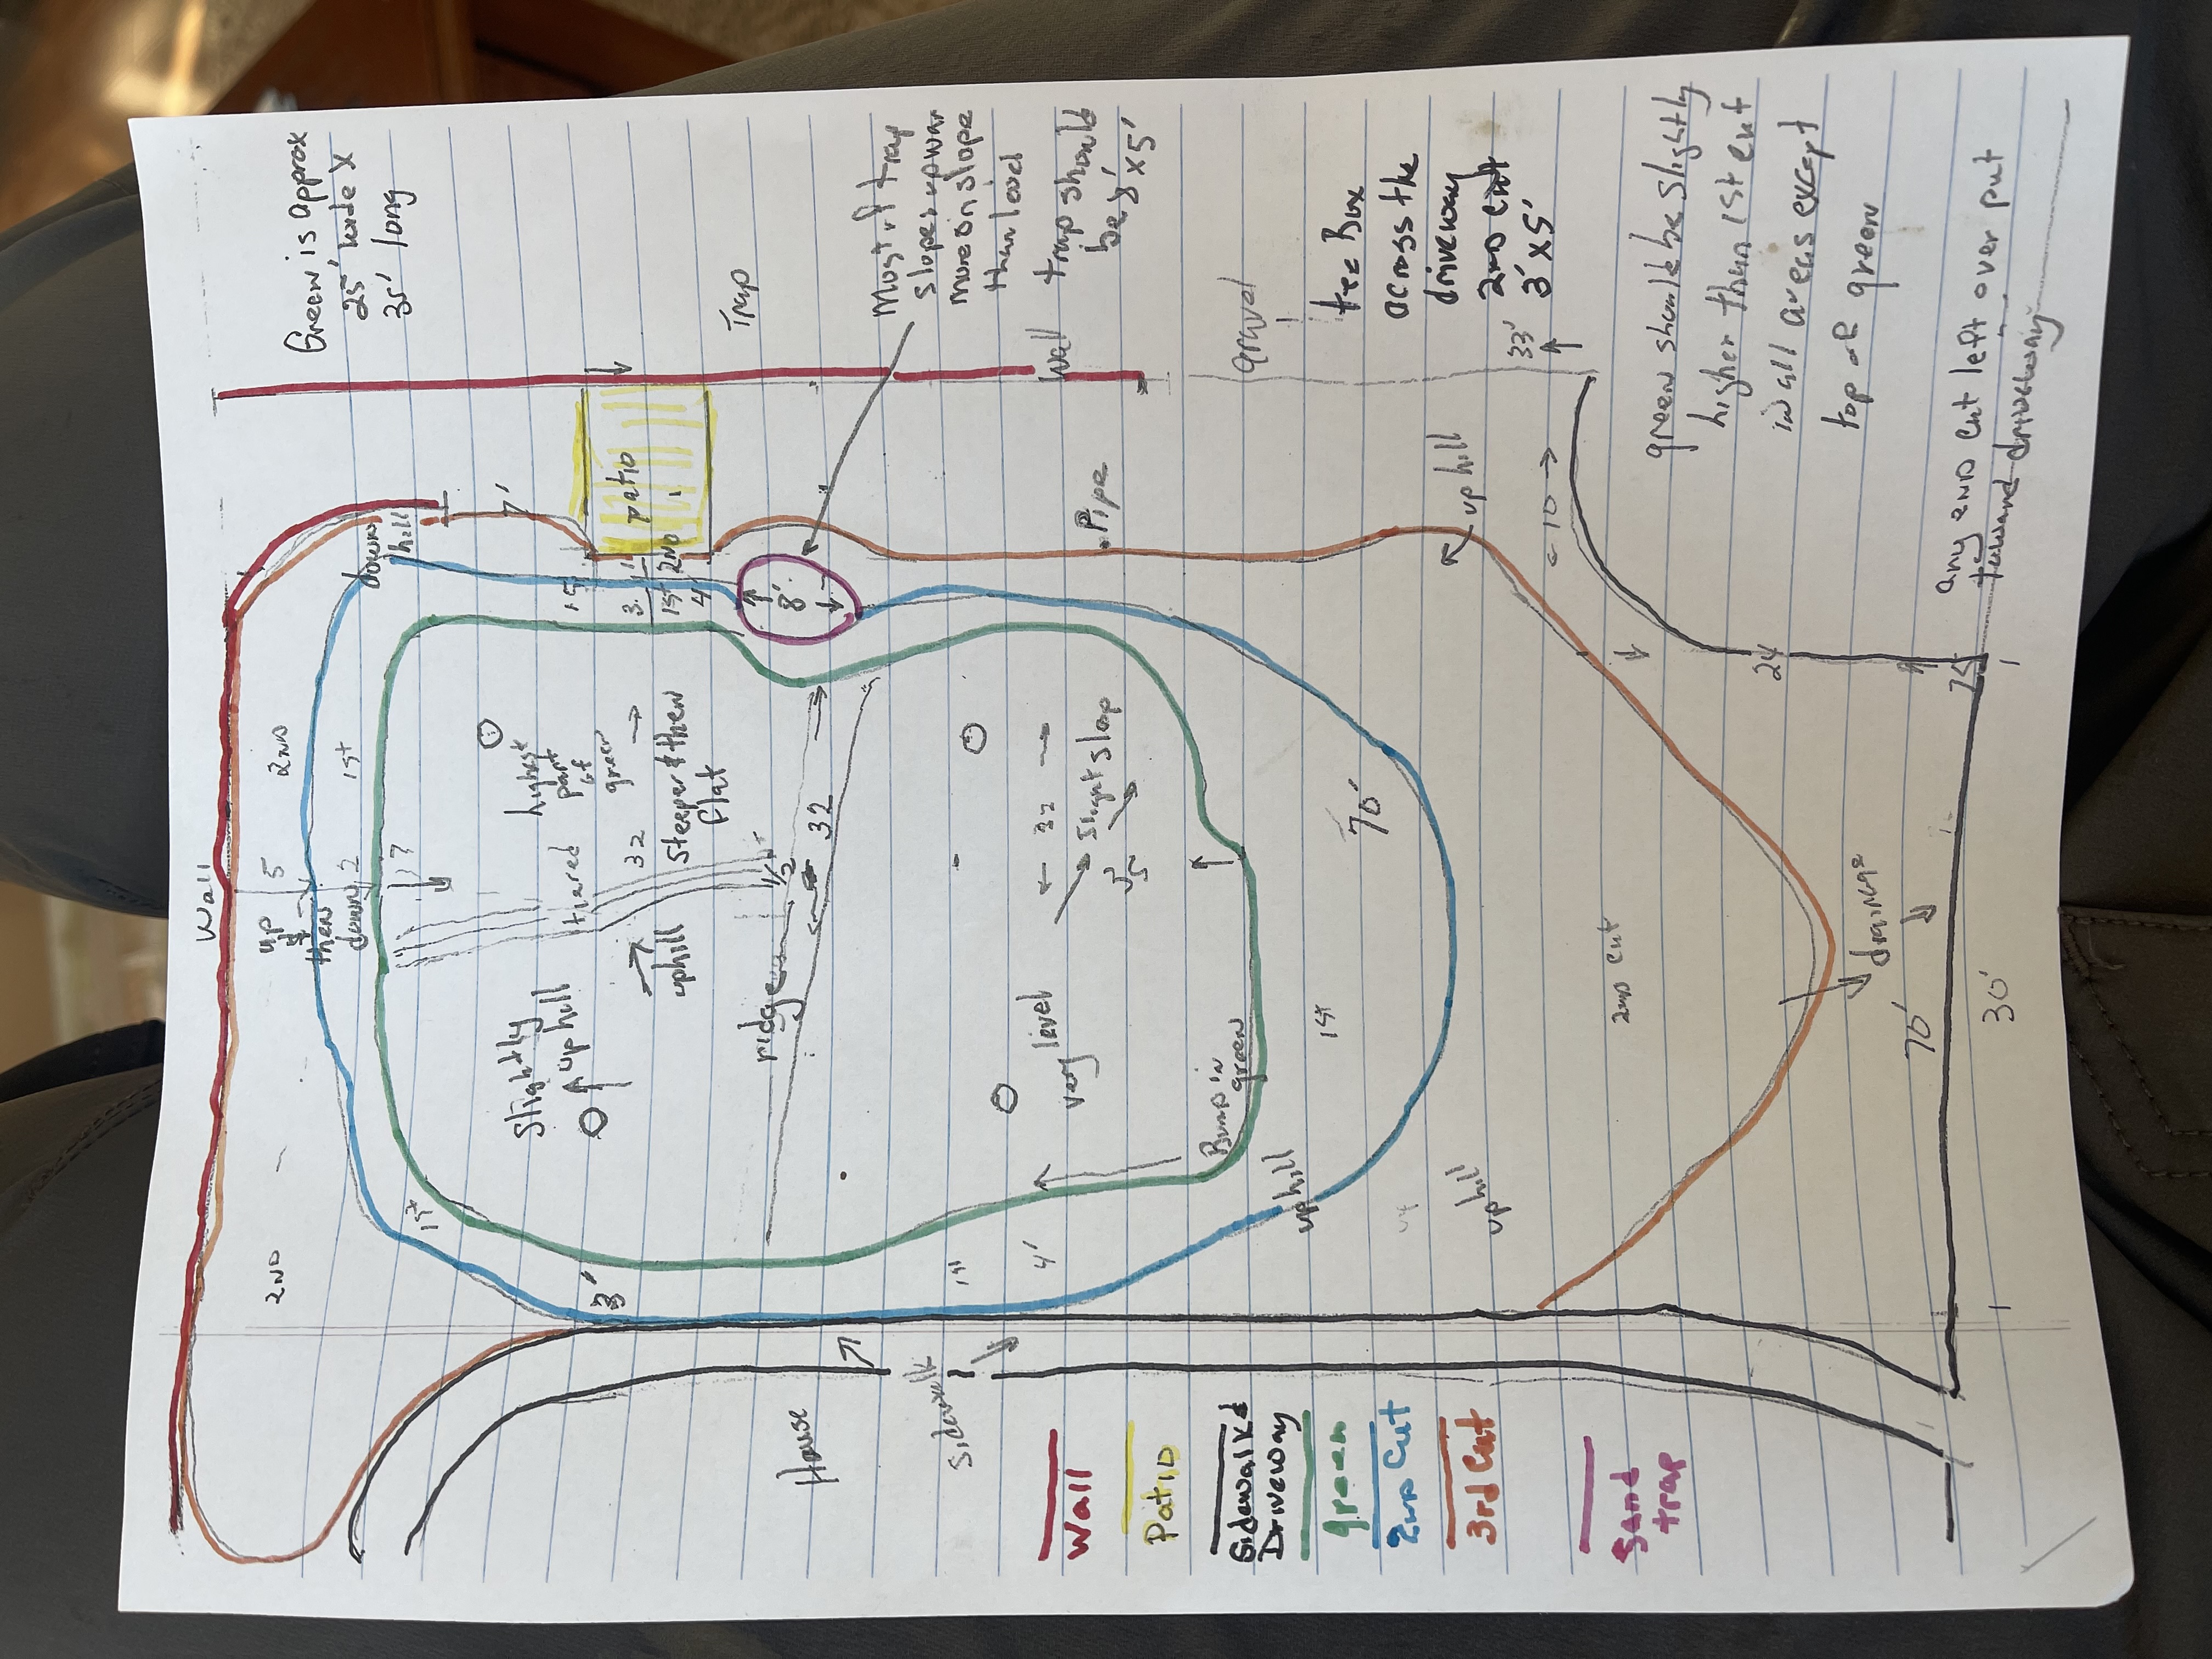 Green is approx
25' wide X
35' long
Trap
Most of trap
slopes upwar
more on slope
than level
trap should
be 8' x 5'
gravel
tee Box
across the
driveway
2ND cut
3' x 5'
33'
green should be slightly
higher than 1st cut
in all areas except
top of green
any 2ND cut left over put
toward driveway
Wall
Wal
down
hill
7'
patio
1st
3
1
1st
2ND
4
8'
Pipe
uphill
10
24
75
2ND
1st
5
2
up
&
then
down
highest
part
of
green
32
Steeper & then
flat
tiered
uphill
Slightly
uphill
ridge
1/2
32
32
Slight slop
very level
Bump in
green
70'
1st
2ND cut
drainage
70'
30'
2ND
1st
3'
1st
4'
uphill
uphill
House
Sidewalk
Wall
Patio
Sidewalk &
Driveway
green
2ND Cut
3rd Cut
Sand
trap